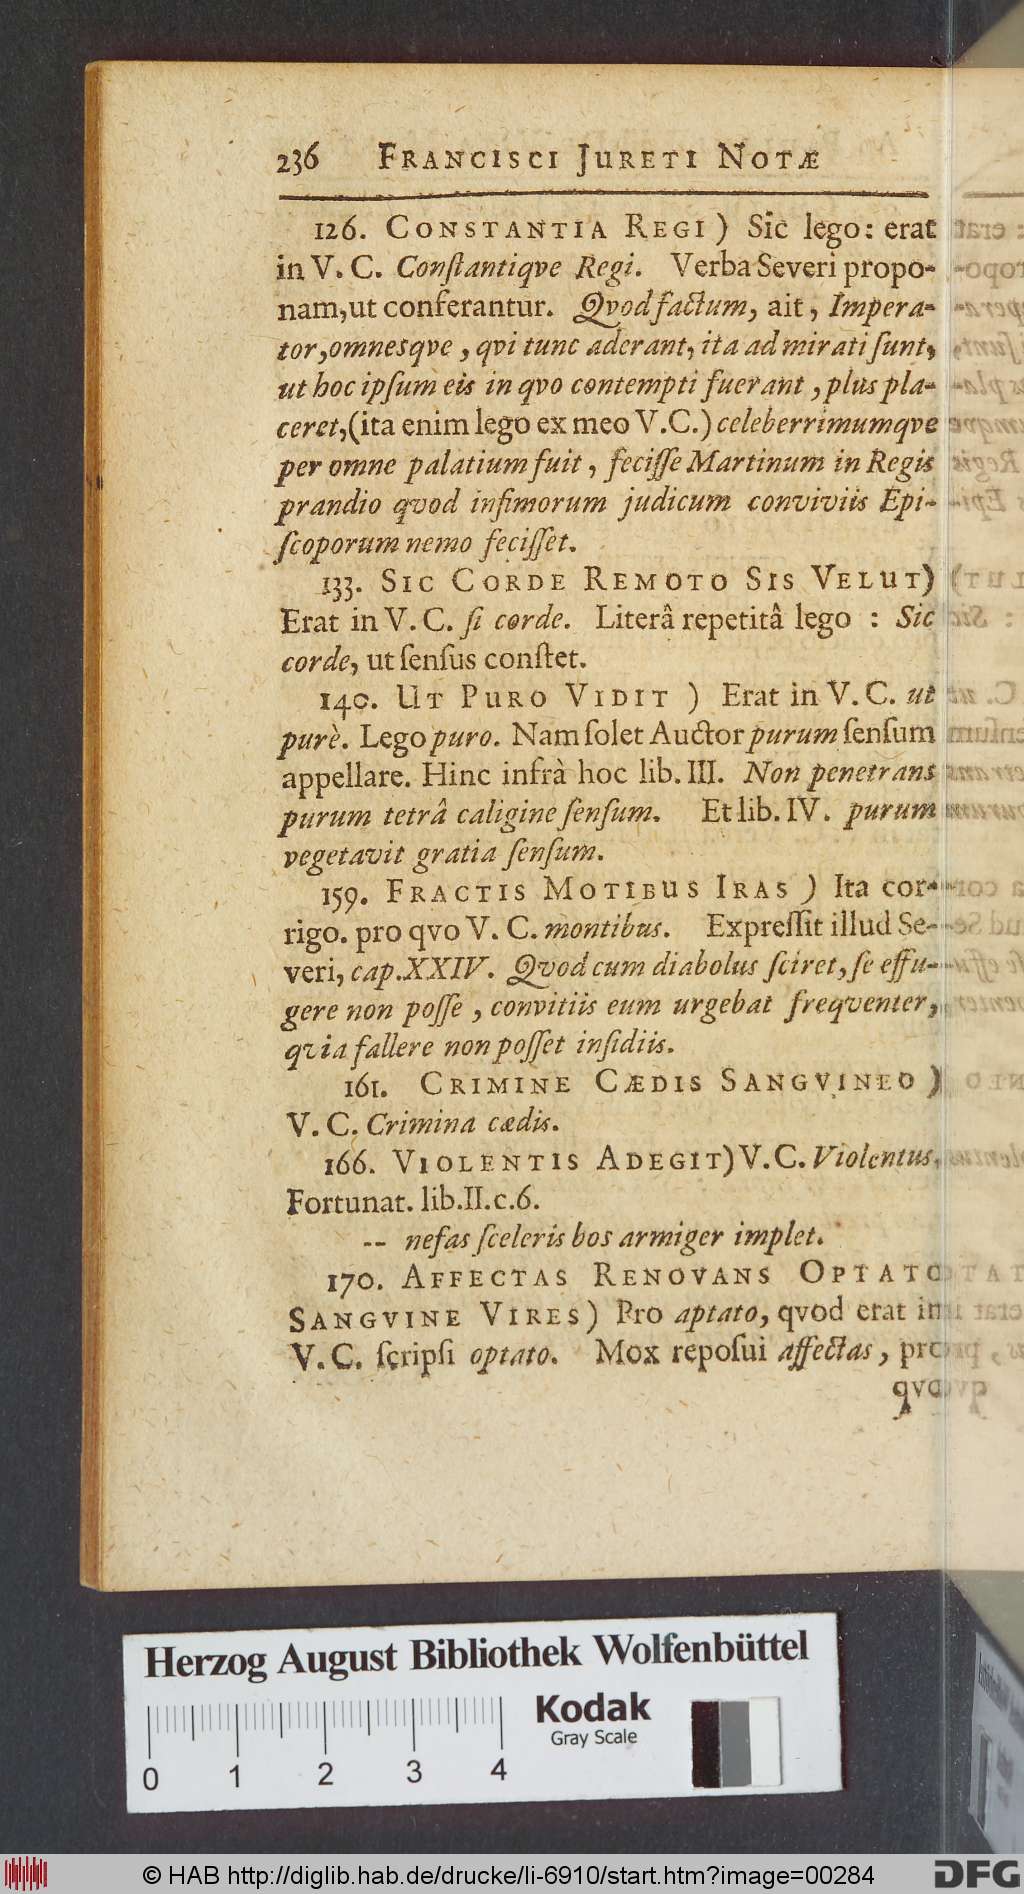 236 FRANCISCI JURETI NOTÆ
126. CONSTANTIA REGI) Sic lego: erat
in V. C. Conſtantiqve Regi. Verba Severi propo-
nam, ut conferantur. Qvod factum, ait, Impera-
tor, omnesqve, qvi tunc aderant, ita admirati ſunt,
ut hoc ipſum eis in qvo contempti fuerant, plus pla-
ceret, (ita enim lego ex meo V.C.) celeberrimumqve
per omne palatium fuit, feciſſe Martinum in Regis
prandio qvod infimorum judicum conviviis Epi-
ſcoporum nemo feciſſet.
133. SIC CORDE REMOTO SIS VELUT)
Erat in V. C. ſi corde. Literâ repetitâ lego : Sic
corde, ut ſenſus conſtet.
140. UT PURO VIDIT ) Erat in V. C. ut
purè. Lego puro. Nam ſolet Auctor purum ſenſum
appellare. Hinc infrà hoc lib. III. Non penetrans
purum tetrâ caligine ſenſum. Et lib. IV. purum
vegetavit gratia ſenſum.
159. FRACTIS MOTIBUS IRAS ) Ita cor-
rigo. pro qvo V. C. montibus. Expreſſit illud Se-
veri, cap. XXIV. Qvod cum diabolus ſciret, ſe effu-
gere non poſſe, convitiis eum urgebat freqventer,
qvia fallere non poſſet inſidiis.
161. CRIMINE CÆDIS SANGVINEO )
V. C. Crimina cædis.
166. VIOLENTIS ADEGIT) V. C. Violentus.
Fortunat. lib. II. c. 6.
-- nefas ſceleris bos armiger implet.
170. AFFECTAS RENOVANS OPTATO
SANGVINE VIRES) Pro aptato, qvod erat in
V. C. ſcripſi optato. Mox repoſui affectas, pro
qvo
Herzog August Bibliothek Wolfenbüttel
Kodak
Gray Scale
0 1 2 3 4
© HAB http://diglib.hab.de/drucke/li-6910/start.htm?image=00284
DFG